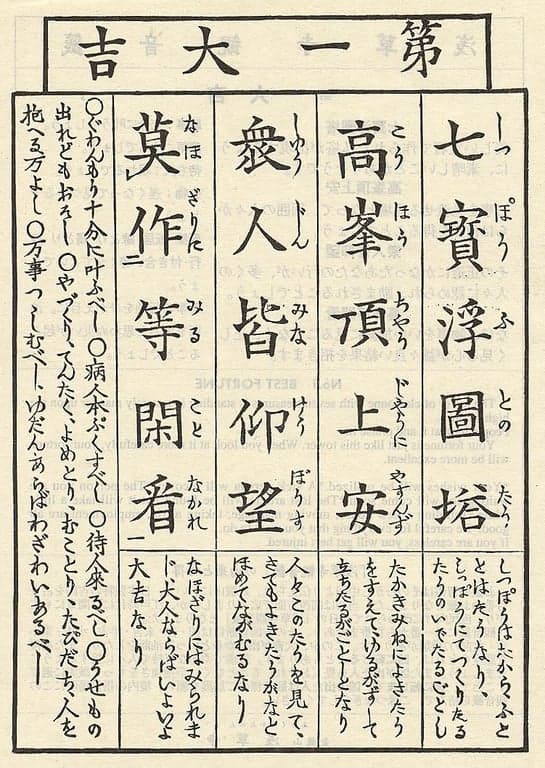 第一大吉
七寶浮圖塔
しつ ぽう ふ との たう
高峯頂上安
こう ほう ちやう じやうに やすんず
衆人皆仰望
しゆう じん みな げう ぼうす
莫作二等閑看一
なほ ざりに みる こと なかれ
しつぽうはたから、ふと
とはたうなり、
しつぽうにてつくりたる
たうのいでたるごとし
たかきみねによきたう
をすえて、ゆるがずして
立ちたるがごとしとなり
人々このたうを見て、
さてもよきたうかなと
ほめて眺むるなり
なほざりにはみられま
じ大人ならばいよいよ
大吉なり
〇ぐわんもう十分に叶ふべし 〇病人本ぷくすべし 〇待人來るべし 〇うせもの
出れどもおそし 〇やづくり てんたく、よめとり むことり たびだち 人を
抱へる万よし 〇万事つゝしむべし、ゆだんあらばわざわいあるべし